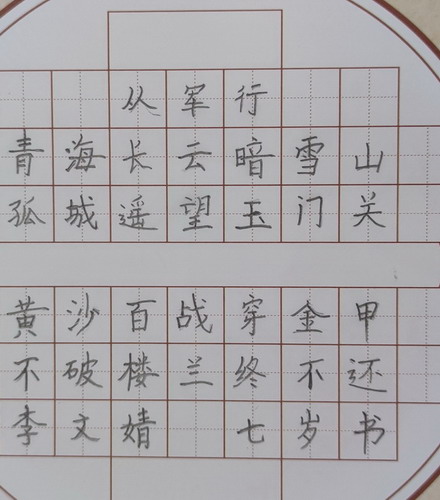 从军行
青海长云暗雪山
孤城遥望玉门关
黄沙百战穿金甲
不破楼兰终不还
李文婧 七岁书